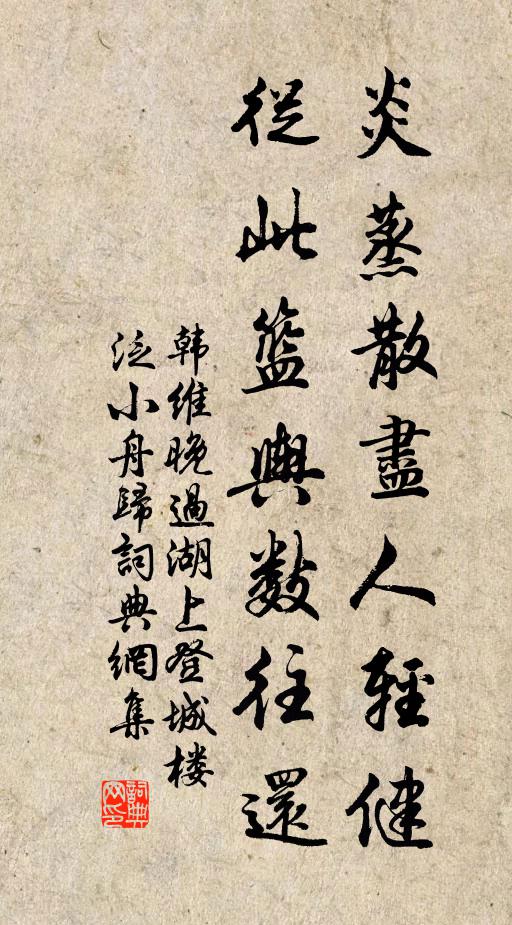 炎蒸散盡人輕健
從此籃輿数往還
韩維晚過湖上登城楼
泛小舟歸詞典網集
詞典网印